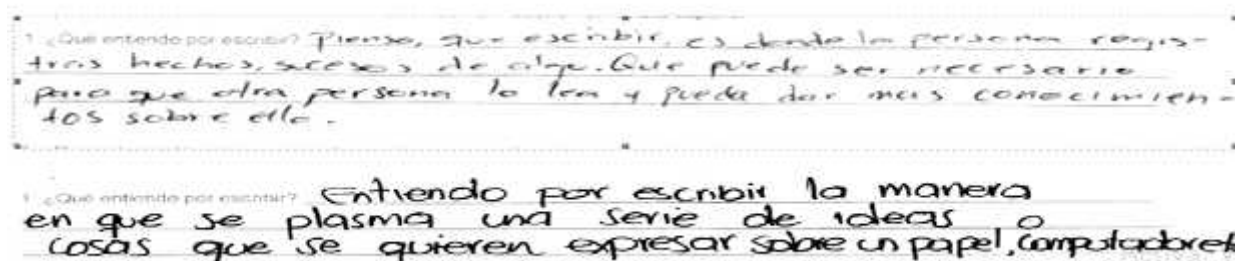 1. ¿Que entiendo por escribir? Pienso, que escribir, es donde la persona regis-
tras hechos, sucesos de algo. Que puede ser necesario
para que otra persona lo lea y pueda dar mas conocimien-
tos sobre ello.
1. ¿Que entiendo por escribir? Entiendo por escribir la manera
en que se plasma una serie de ideas o
cosas que se quieren expresar sobre un papel, computadora